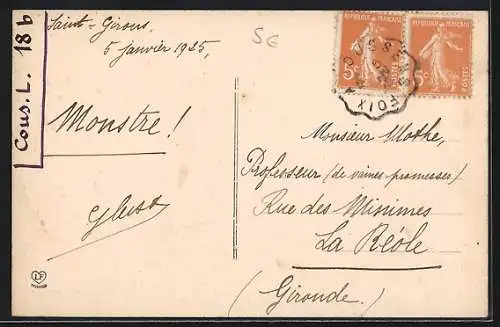 Saint-Girons,
5 janvier 1925,
Cous. L. 18 b
5€
Monstre !
RÉPUBLIQUE FRANÇAISE
5c
POSTES
RÉPUBLIQUE FRANÇAISE
5c
POSTES
FOIX
Monsieur Mothe,
Professeur (de vaines promesses)
Rue des Minimes
La Réole
(Gironde.)